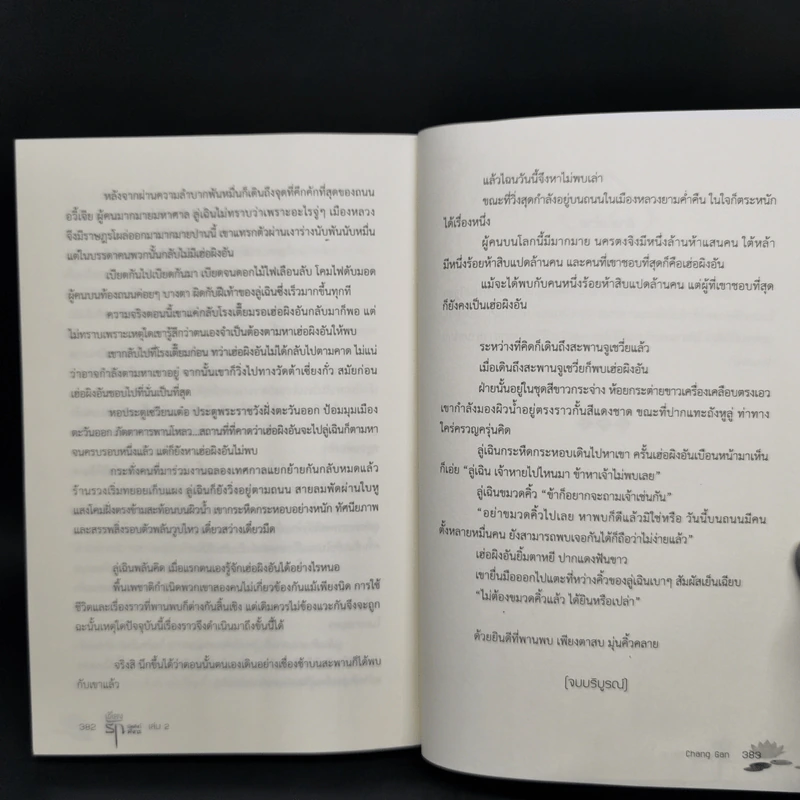 หลังจากผ่านความลำบากพันหมื่นก็เดินถึงจุดที่คึกคักที่สุดของถนน
อวี้เจีย ผู้คนมากมายมหาศาล ลู่เฉินไม่ทราบว่าเพราะอะไรจู่ๆ เมืองหลวง
จึงมีราษฎรโผล่ออกมามากมายปานนี้ เขาแทรกตัวผ่านเงาร่างนับพันนับหมื่น
แต่ในบรรดาคนพวกนั้นกลับไม่มีเฮ่อผิงอัน
เบียดกันไปเบียดกันมา เบียดจนดอกไม้ไฟเลือนลับ โคมไฟดับมอด
ผู้คนบนท้องถนนค่อยๆ บางตา ผิดกับฝีเท้าของลู่เฉินซึ่งเร็วมากขึ้นทุกที
ความจริงตอนนี้เขาแค่กลับโรงเตี๊ยมรอเฮ่อผิงอันกลับมาก็พอ แต่
ไม่ทราบเพราะเหตุใดเขารู้สึกว่าตนเองจำเป็นต้องตามหาเฮ่อผิงอันให้พบ
เขากลับไปที่โรงเตี๊ยมก่อน ทว่าเฮ่อผิงอันไม่ได้กลับไปตามคาด ไม่แน่
ว่าอาจกำลังตามหาเขาอยู่ จากนั้นเขาก็วิ่งไปทางวัดต้าเซี่ยงกั๋ว สมัยก่อน
เฮ่อผิงอันชอบไปที่นั่นเป็นที่สุด
หอประตูเซวียนเต๋อ ประตูพระราชวังฝั่งตะวันออก ป้อมมุมเมือง
ตะวันออก ภัตตาคารพานโหลว...สถานที่ที่คาดว่าเฮ่อผิงอันจะไปลู่เฉินก็ตามหา
จนครบรอบหนึ่งแล้ว แต่ก็ยังหาเฮ่อผิงอันไม่พบ
กระทั่งคนที่มาร่วมงานฉลองเทศกาลแยกย้ายกันกลับหมดแล้ว
ร้านรวงเริ่มทยอยเก็บแผง ลู่เฉินก็ยังวิ่งอยู่ตามถนน สายลมพัดผ่านใบหู
แสงโคมฝั่งตรงข้ามสะท้อนบนผิวน้ำ เขากระหืดกระหอบอย่างหนัก ทัศนียภาพ
และสรรพสิ่งรอบตัวพลันวูบไหว เดี๋ยวสว่างเดี๋ยวมืด
ลู่เฉินพลันคิด เมื่อแรกตนเองรู้จักเฮ่อผิงอันได้อย่างไรหนอ
พื้นเพชาติกำเนิดพวกเขาสองคนไม่เกี่ยวข้องกันแม้เพียงนิด การใช้
ชีวิตและเรื่องราวที่พานพบก็ต่างกันสิ้นเชิง แต่เดิมควรไม่ข้องแวะกันจึงจะถูก
ฉะนั้นเหตุใดปัจจุบันนี้เรื่องราวจึงดำเนินมาถึงขั้นนี้ได้
จริงสิ นึกขึ้นได้ว่าตอนนั้นตนเองเดินอย่างเชื่องช้าบนสะพานก็ได้พบ
กับเขาแล้ว
382
เล่ม 2
แล้วไฉนวันนี้จึงหาไม่พบเล่า
ขณะที่วิ่งสุดกำลังอยู่บนถนนในเมืองหลวงยามค่ำคืน ในใจก็ตระหนัก
ได้เรื่องหนึ่ง
ผู้คนบนโลกนี้มีมากมาย นครตงจิงมีหนึ่งล้านห้าแสนคน ใต้หล้า
มีหนึ่งร้อยห้าสิบแปดล้านคน และคนที่เขาชอบที่สุดก็คือเฮ่อผิงอัน
แม้จะได้พบกับคนหนึ่งร้อยห้าสิบแปดล้านคน แต่ผู้ที่เขาชอบที่สุด
ก็ยังคงเป็นเฮ่อผิงอัน
ระหว่างที่คิดก็เดินถึงสะพานจูเชวี่ยแล้ว
เมื่อเดินถึงสะพานจูเชวี่ยก็พบเฮ่อผิงอัน
ฝ่ายนั้นอยู่ในชุดสีขาวกระจ่าง ห้อยกระต่ายขาวเครื่องเคลือบตรงเอว
เขากำลังมองผิวน้ำอยู่ตรงราวกั้นสีแดงชาด ขณะที่ปากแทะถังหูลู่ ท่าทาง
ใคร่ครวญครุ่นคิด
ลู่เฉินกระหืดกระหอบเดินไปหาเขา ครั้นเฮ่อผิงอันเบือนหน้ามาเห็น
ก็เอ่ย “ลู่เฉิน เจ้าหายไปไหนมา ข้าหาเจ้าไม่พบเลย”
ลู่เฉินขมวดคิ้ว “ข้าก็อยากจะถามเจ้าเช่นกัน”
“อย่าขมวดคิ้วไปเลย หาพบก็ดีแล้วมิใช่หรือ วันนี้บนถนนมีคน
ตั้งหลายหมื่นคน ยังสามารถพบเจอกันได้ก็ถือว่าไม่ง่ายแล้ว”
เฮ่อผิงอันยิ้มตาหยี ปากแดงฟันขาว
เขายื่นมือออกไปแตะที่หว่างคิ้วของลู่เฉินเบาๆ สัมผัสเย็นเฉียบ
“ไม่ต้องขมวดคิ้วแล้ว ได้ยินหรือเปล่า”
ด้วยยินดีที่พานพบ เพียงตาสบ มุ่นคิ้วคลาย
(จบบริบูรณ์)
Chang Gan 383